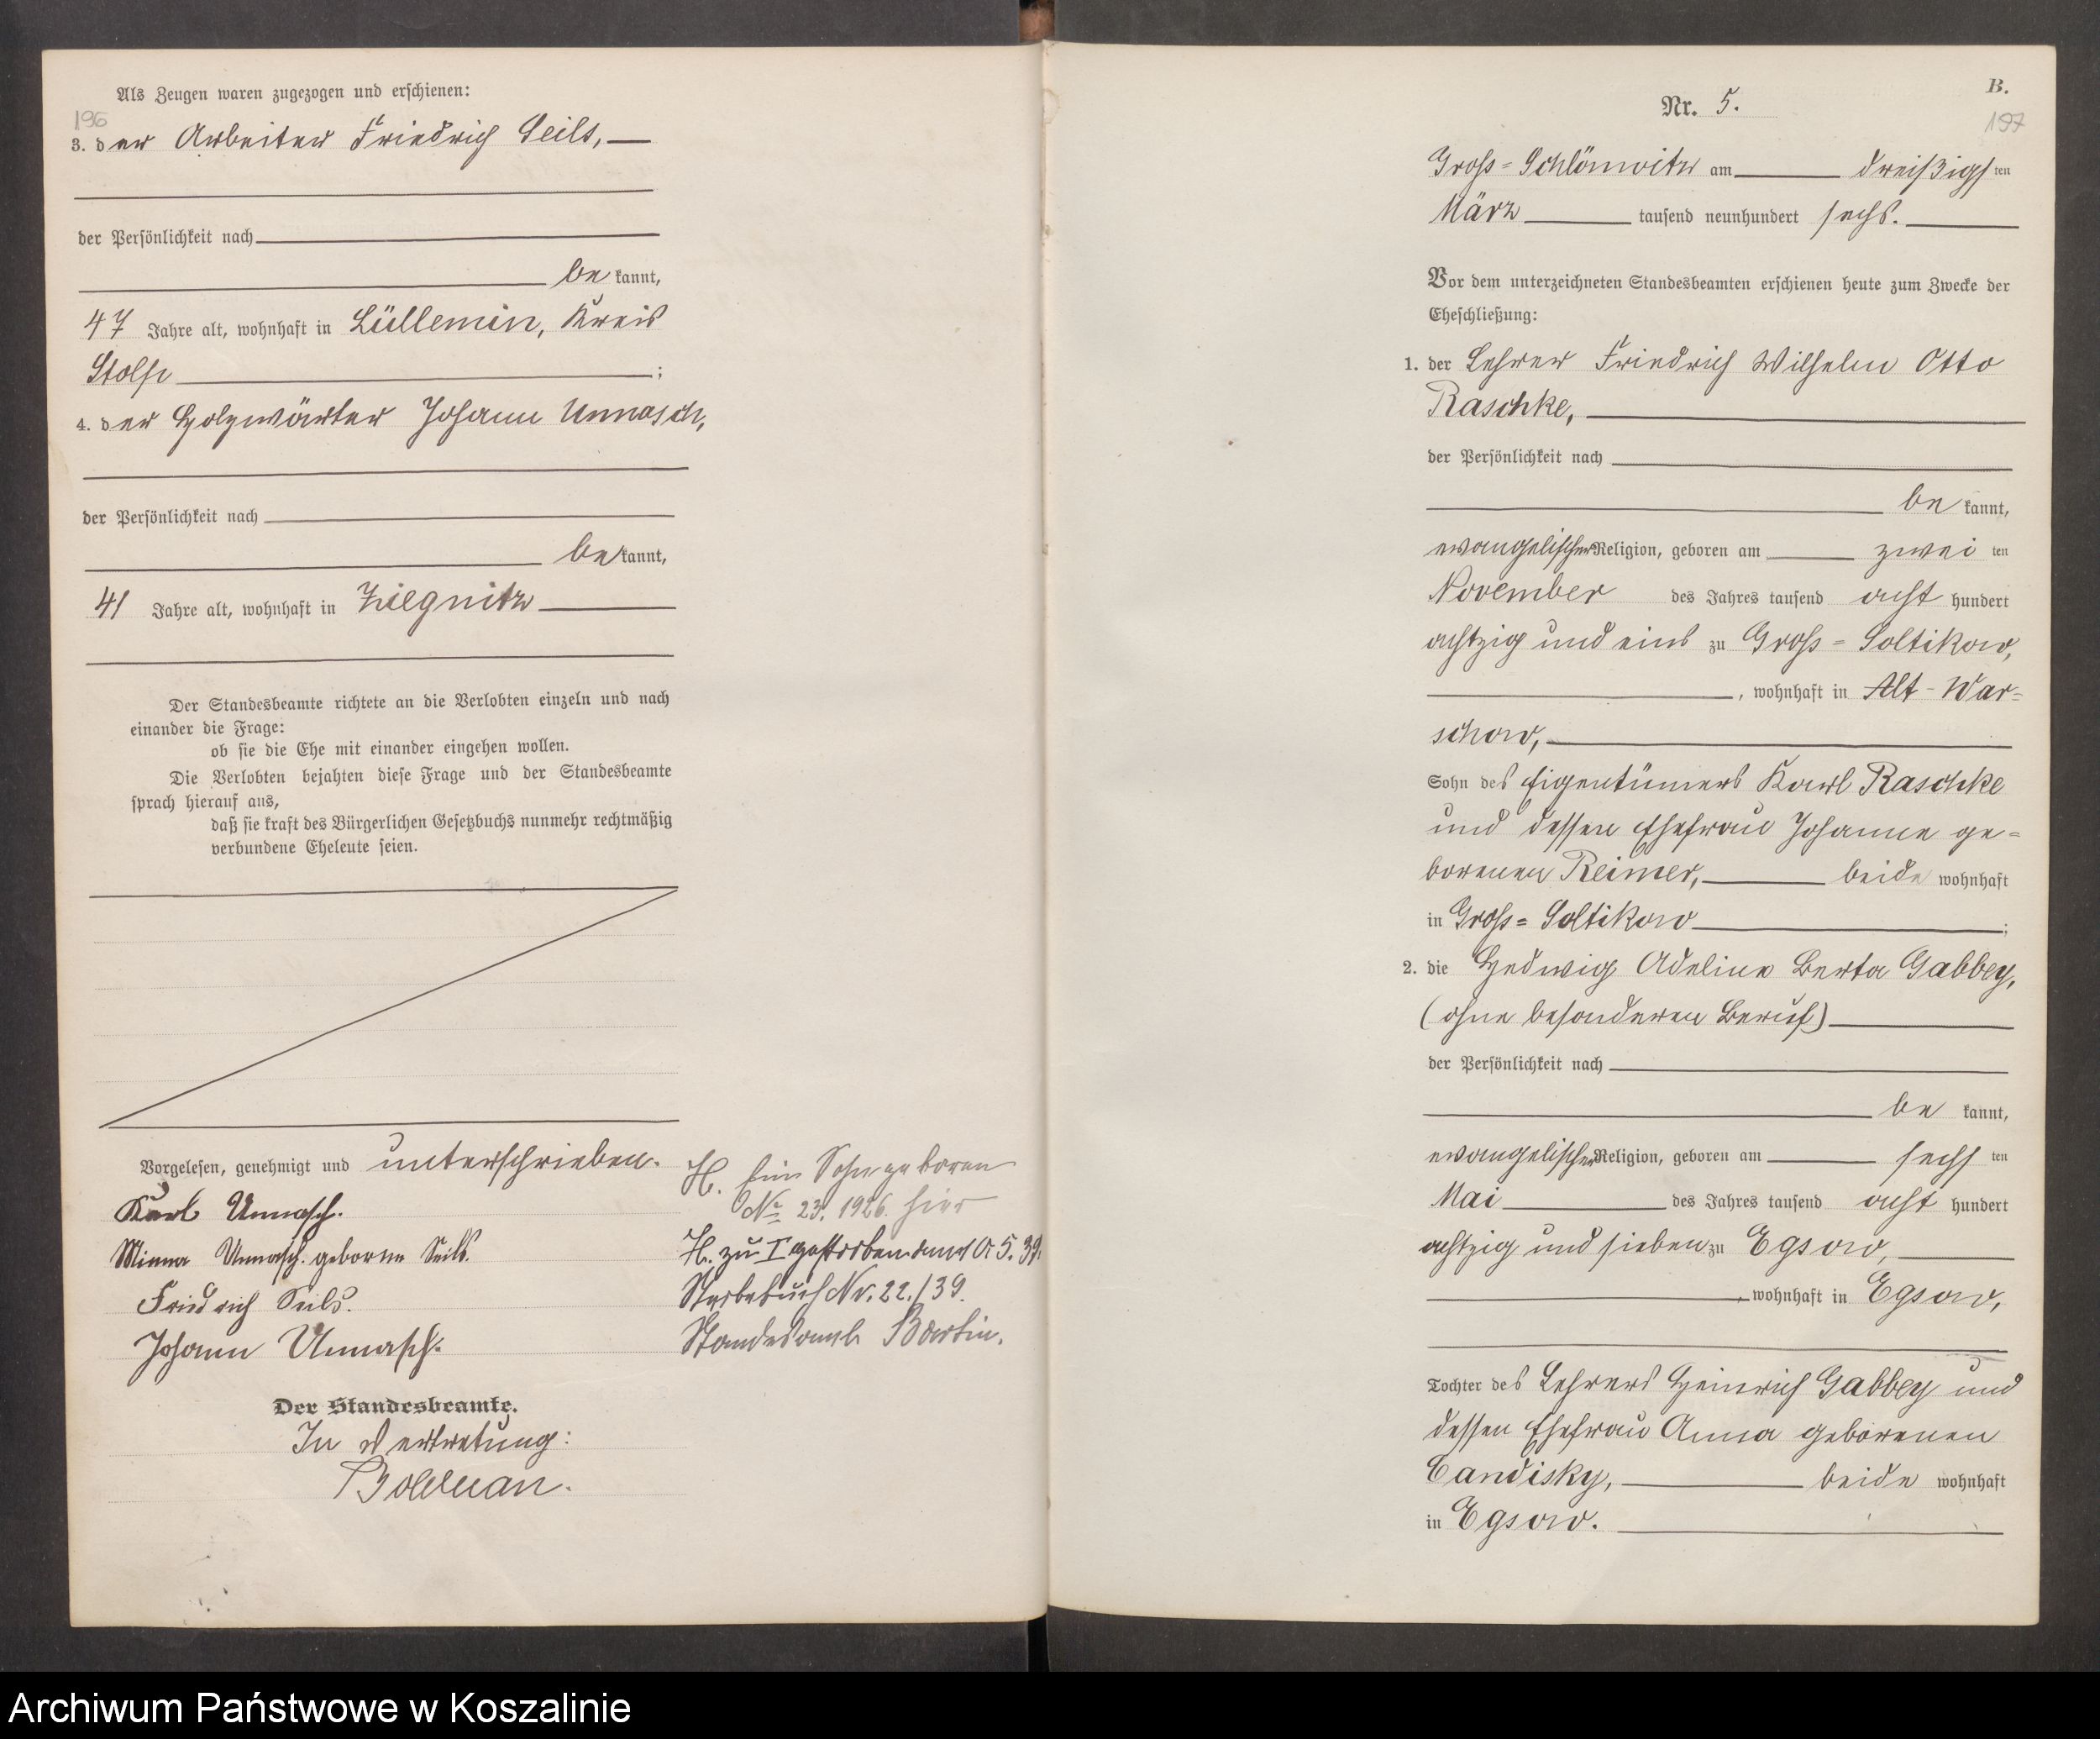 Als Zeugen waren zugezogen und erschienen:
196
3. der Arbeiter Friedrich Seils,
der Persönlichkeit nach
be kannt,
47 Jahre alt, wohnhaft in Lüllemin, Kreis
Stolp ;
4. der Holzwärter Johann Unnasch,
der Persönlichkeit nach
be kannt,
41 Jahre alt, wohnhaft in Ziegnitz
Der Standesbeamte richtete an die Verlobten einzeln und nach
einander die Frage:
ob sie die Ehe mit einander eingehen wollen.
Die Verlobten bejahten diese Frage und der Standesbeamte
sprach hierauf aus,
daß sie kraft des Bürgerlichen Gesetzbuchs nunmehr rechtmäßig
verbundene Eheleute seien.
Vorgelesen, genehmigt und unterschrieben.
Karl Unnasch.
Minna Unnasch geborene Seils.
Friedrich Seils.
Johann Unnasch.
H. Ein Sohn geboren
No 23. 1926. hier
H. zu I gestorben 5. 39.
Sterbebuch Nr. 22./39.
Standesamt Bartin.
Der Standesbeamte.
In Vertretung:
Bolduan.
B.
Nr. 5.
197
Gross-Schlönwitz am dreißigsten
März tausend neunhundert sechs.
Vor dem unterzeichneten Standesbeamten erschienen heute zum Zwecke der
Eheschließung:
1. der Lehrer Friedrich Wilhelm Otto
Raschke,
der Persönlichkeit nach
be kannt,
evangelischer Religion, geboren am zwei ten
November des Jahres tausend acht hundert
achtzig und eins zu Gross-Soltikow,
, wohnhaft in Alt-War-
schow,
Sohn des Eigentümers Karl Raschke
und dessen Ehefrau Johanne ge-
borenen Reimer, beide wohnhaft
in Gross-Soltikow ;
2. die Hedwig Adeline Berta Gabbey,
(ohne besonderen Beruf)
der Persönlichkeit nach
be kannt,
evangelischer Religion, geboren am sechs ten
Mai des Jahres tausend acht hundert
achtzig und sieben zu Egsow,
wohnhaft in Egsow,
Tochter des Lehrers Heinrich Gabbey und
dessen Ehefrau Anna geborenen
Candisky, beide wohnhaft
in Egsow.
Archiwum Państwowe w Koszalinie